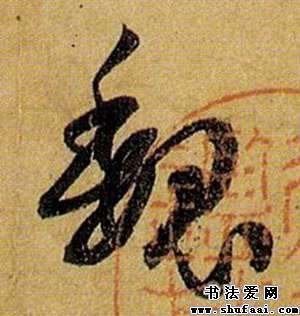 魏
书法爱网
www.shufaai.com